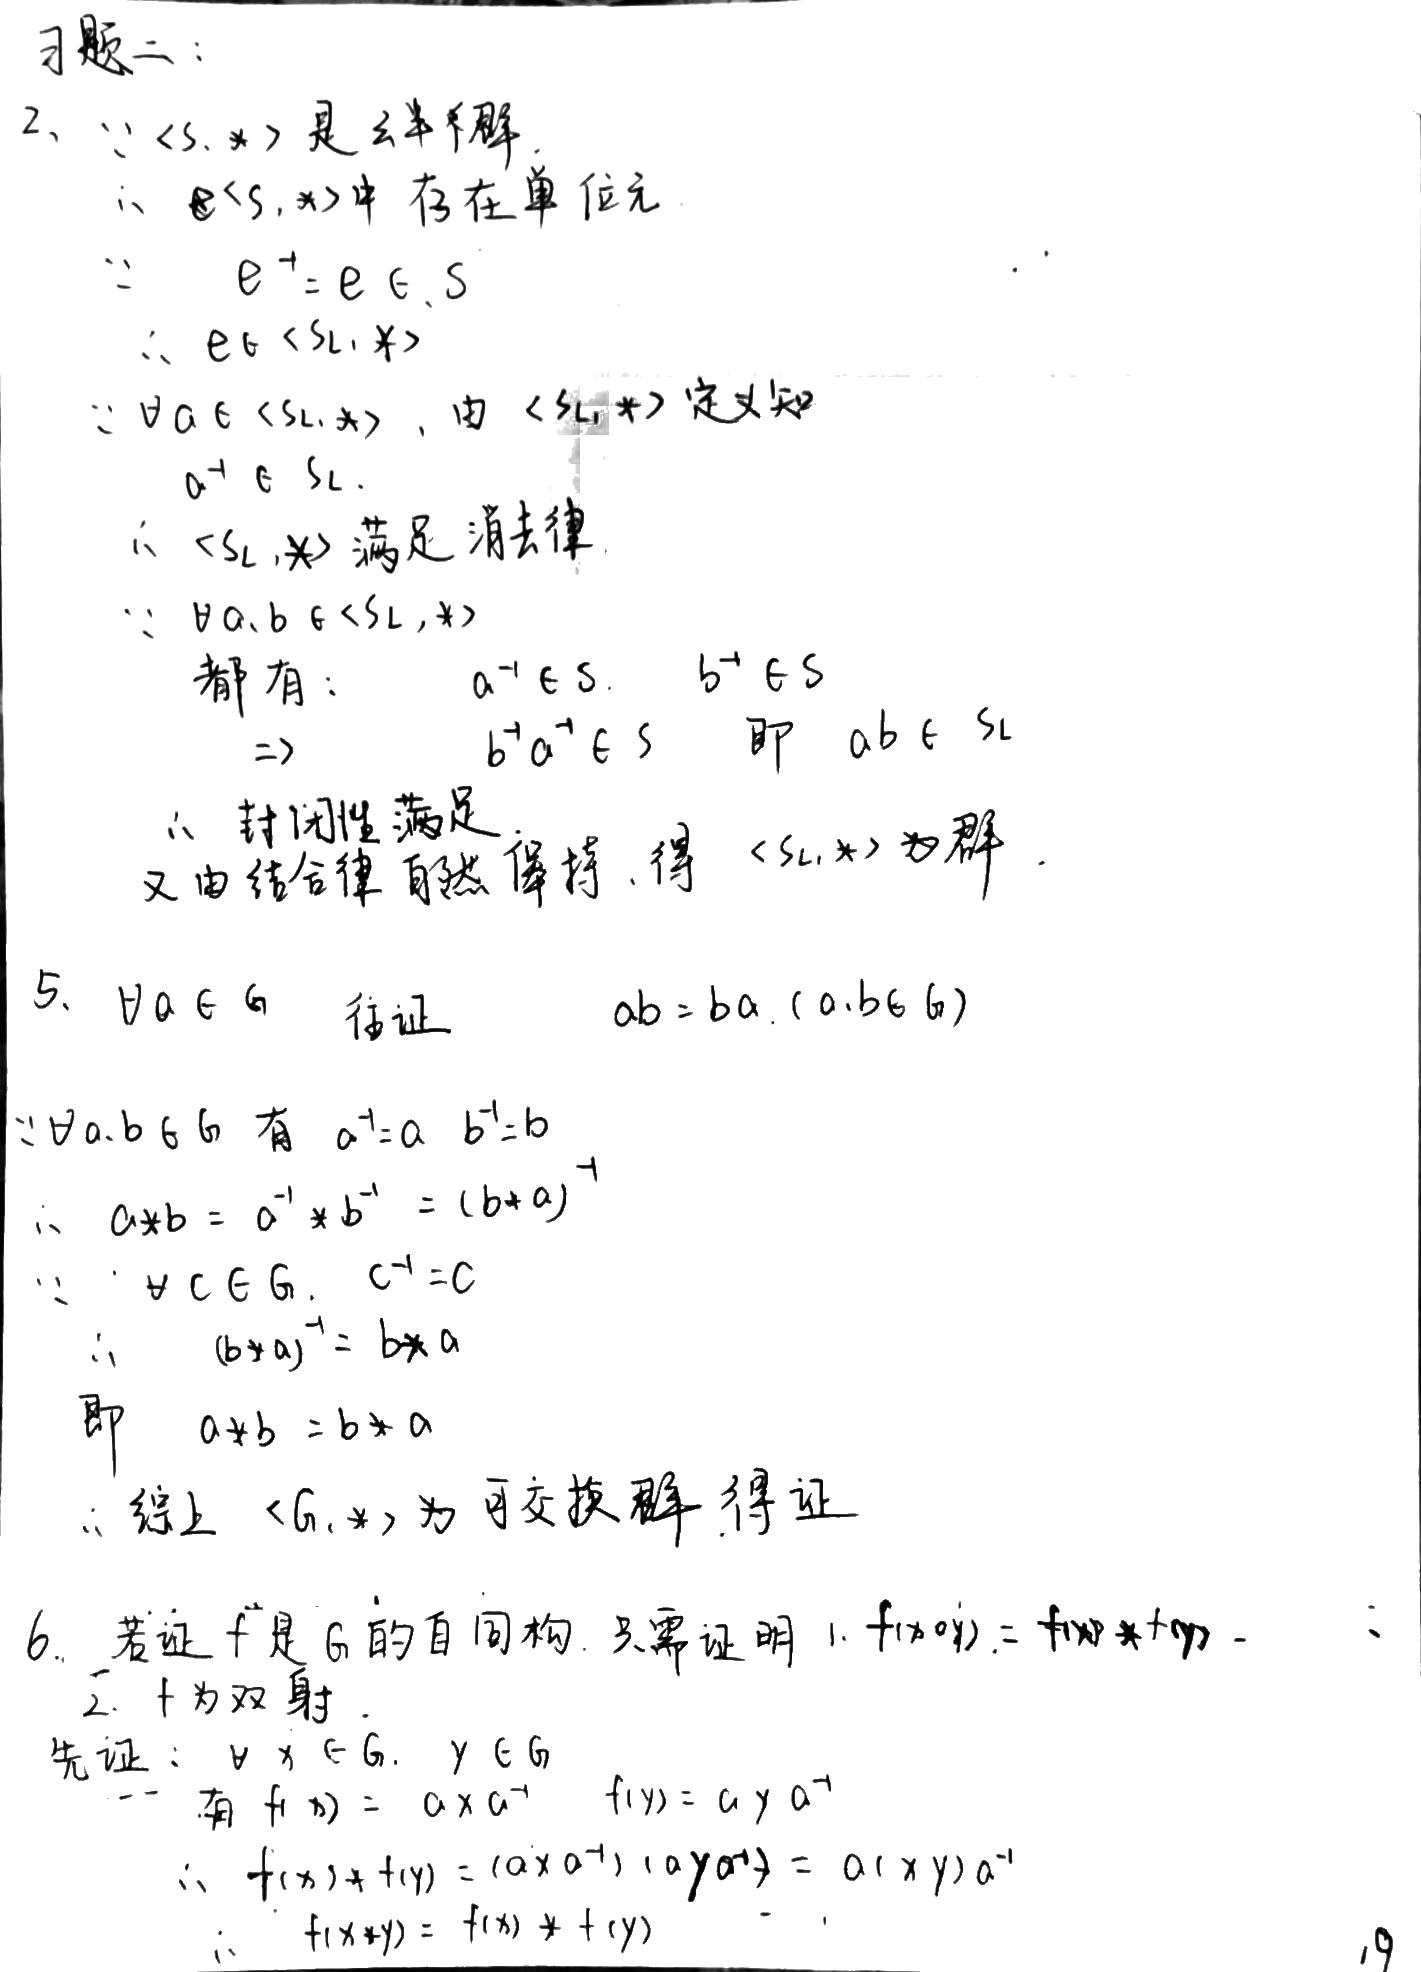 习题二:
2、∵<S、*>是幺半群.
∴ <S,*>中 存在单位元.
∵ e⁻¹=e∈S
∴ e∈<SL,*>
∵∀a∈<SL,*>,由<SL,*>定义知
a⁻¹∈SL.
∴ <SL,*>满足消去律.
∵ ∀a、b∈<SL,*>
都有: a⁻¹∈S. b⁻¹∈S
=> b⁻¹a⁻¹∈S 即 ab∈SL
∴ 封闭性满足
又由结合律自然保持、得 <SL,*>为群.
5、∀a∈G 往证 ab=ba.(a.b∈G)
∵∀a.b∈G 有 a⁻¹=a b⁻¹=b
∴ a*b = a⁻¹*b⁻¹ = (b*a)⁻¹
∵ ∀c∈G. c⁻¹=c
∴ (b*a)⁻¹= b*a
即 a*b=b*a
∴综上 <G,*>为可交换群.得证
6. 若证"f"是G的自同构.只需证明 1. f(x∘y)=f(x)*f(y)
2. f为双射.
先证: ∀x∈G. y∈G
有 f(x)= axa⁻¹ f(y)=aya⁻¹
∴ f(x)*f(y)=(axa⁻¹)(aya⁻¹)= a(xy)a⁻¹
∴ f(x*y)= f(x)*f(y)
19